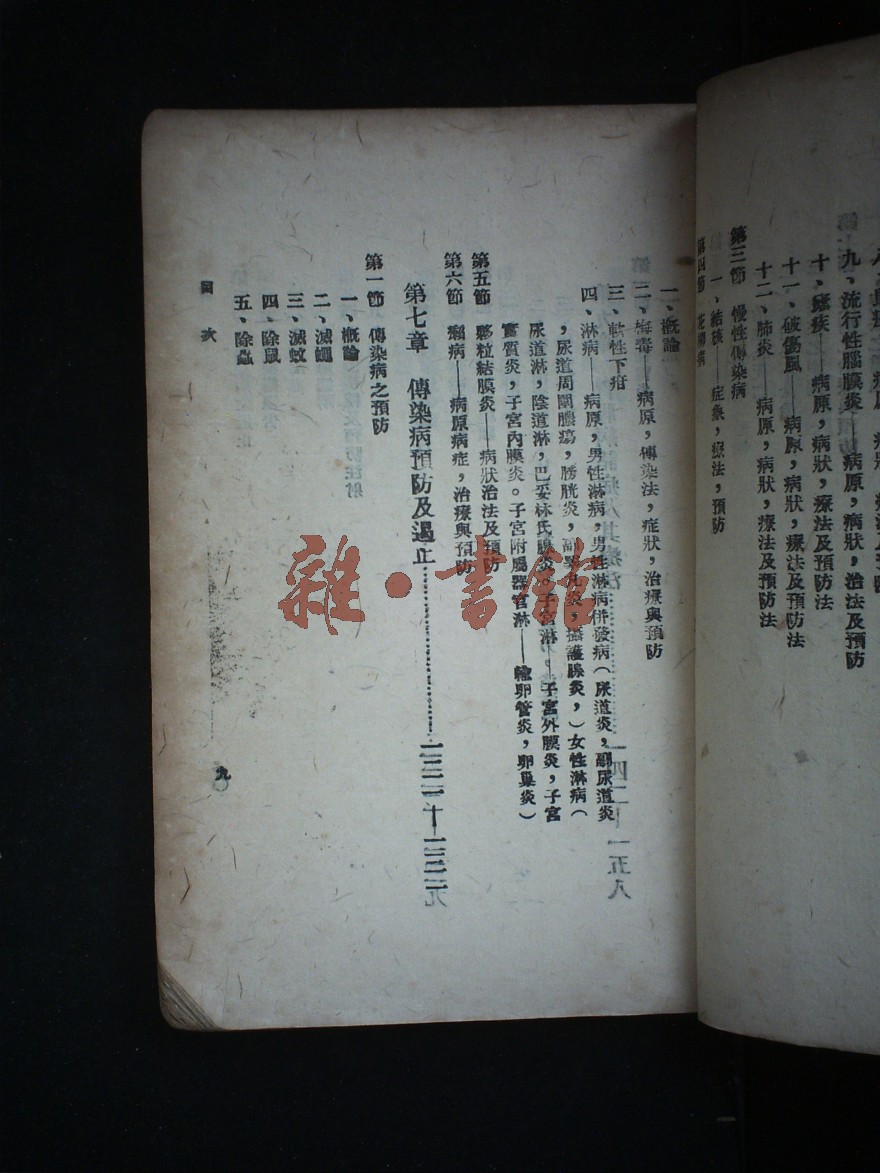 九、流行性腦膜炎——病原，病狀，治法及預防
十、瘧疾——病原，病狀，療法及預防法
十一、破傷風——病原，病狀，療法及預防法
十二、肺炎——病原，病狀，療法及預防法
第三節 慢性傳染病
一、結核——症象，療法，預防
第四節 花柳病
一、概論
二、梅毒——病原，傳染法，症狀，治療與預防
三、軟性下疳
四、淋病——病原，男性淋病，男性淋病併發病（尿道炎，副尿道炎
，尿道周圍膿瘍，膀胱炎，副睪丸炎，攝護腺炎，）女性淋病（
尿道淋，陰道淋，巴妥林氏腺炎，子宮淋——子宮外膜炎，子宮
實質炎，子宮內膜炎。子宮附屬器官淋——輸卵管炎，卵巢炎）
第五節 夥粒結膜炎——病狀治法及預防
第六節 癩病——病原病症，治療與預防
第七章 傳染病預防及遏止
第一節 傳染病之預防
一、概論
二、滅蠅
三、滅蚊
四、除鼠
五、除蟲
目次
九
雜·書館